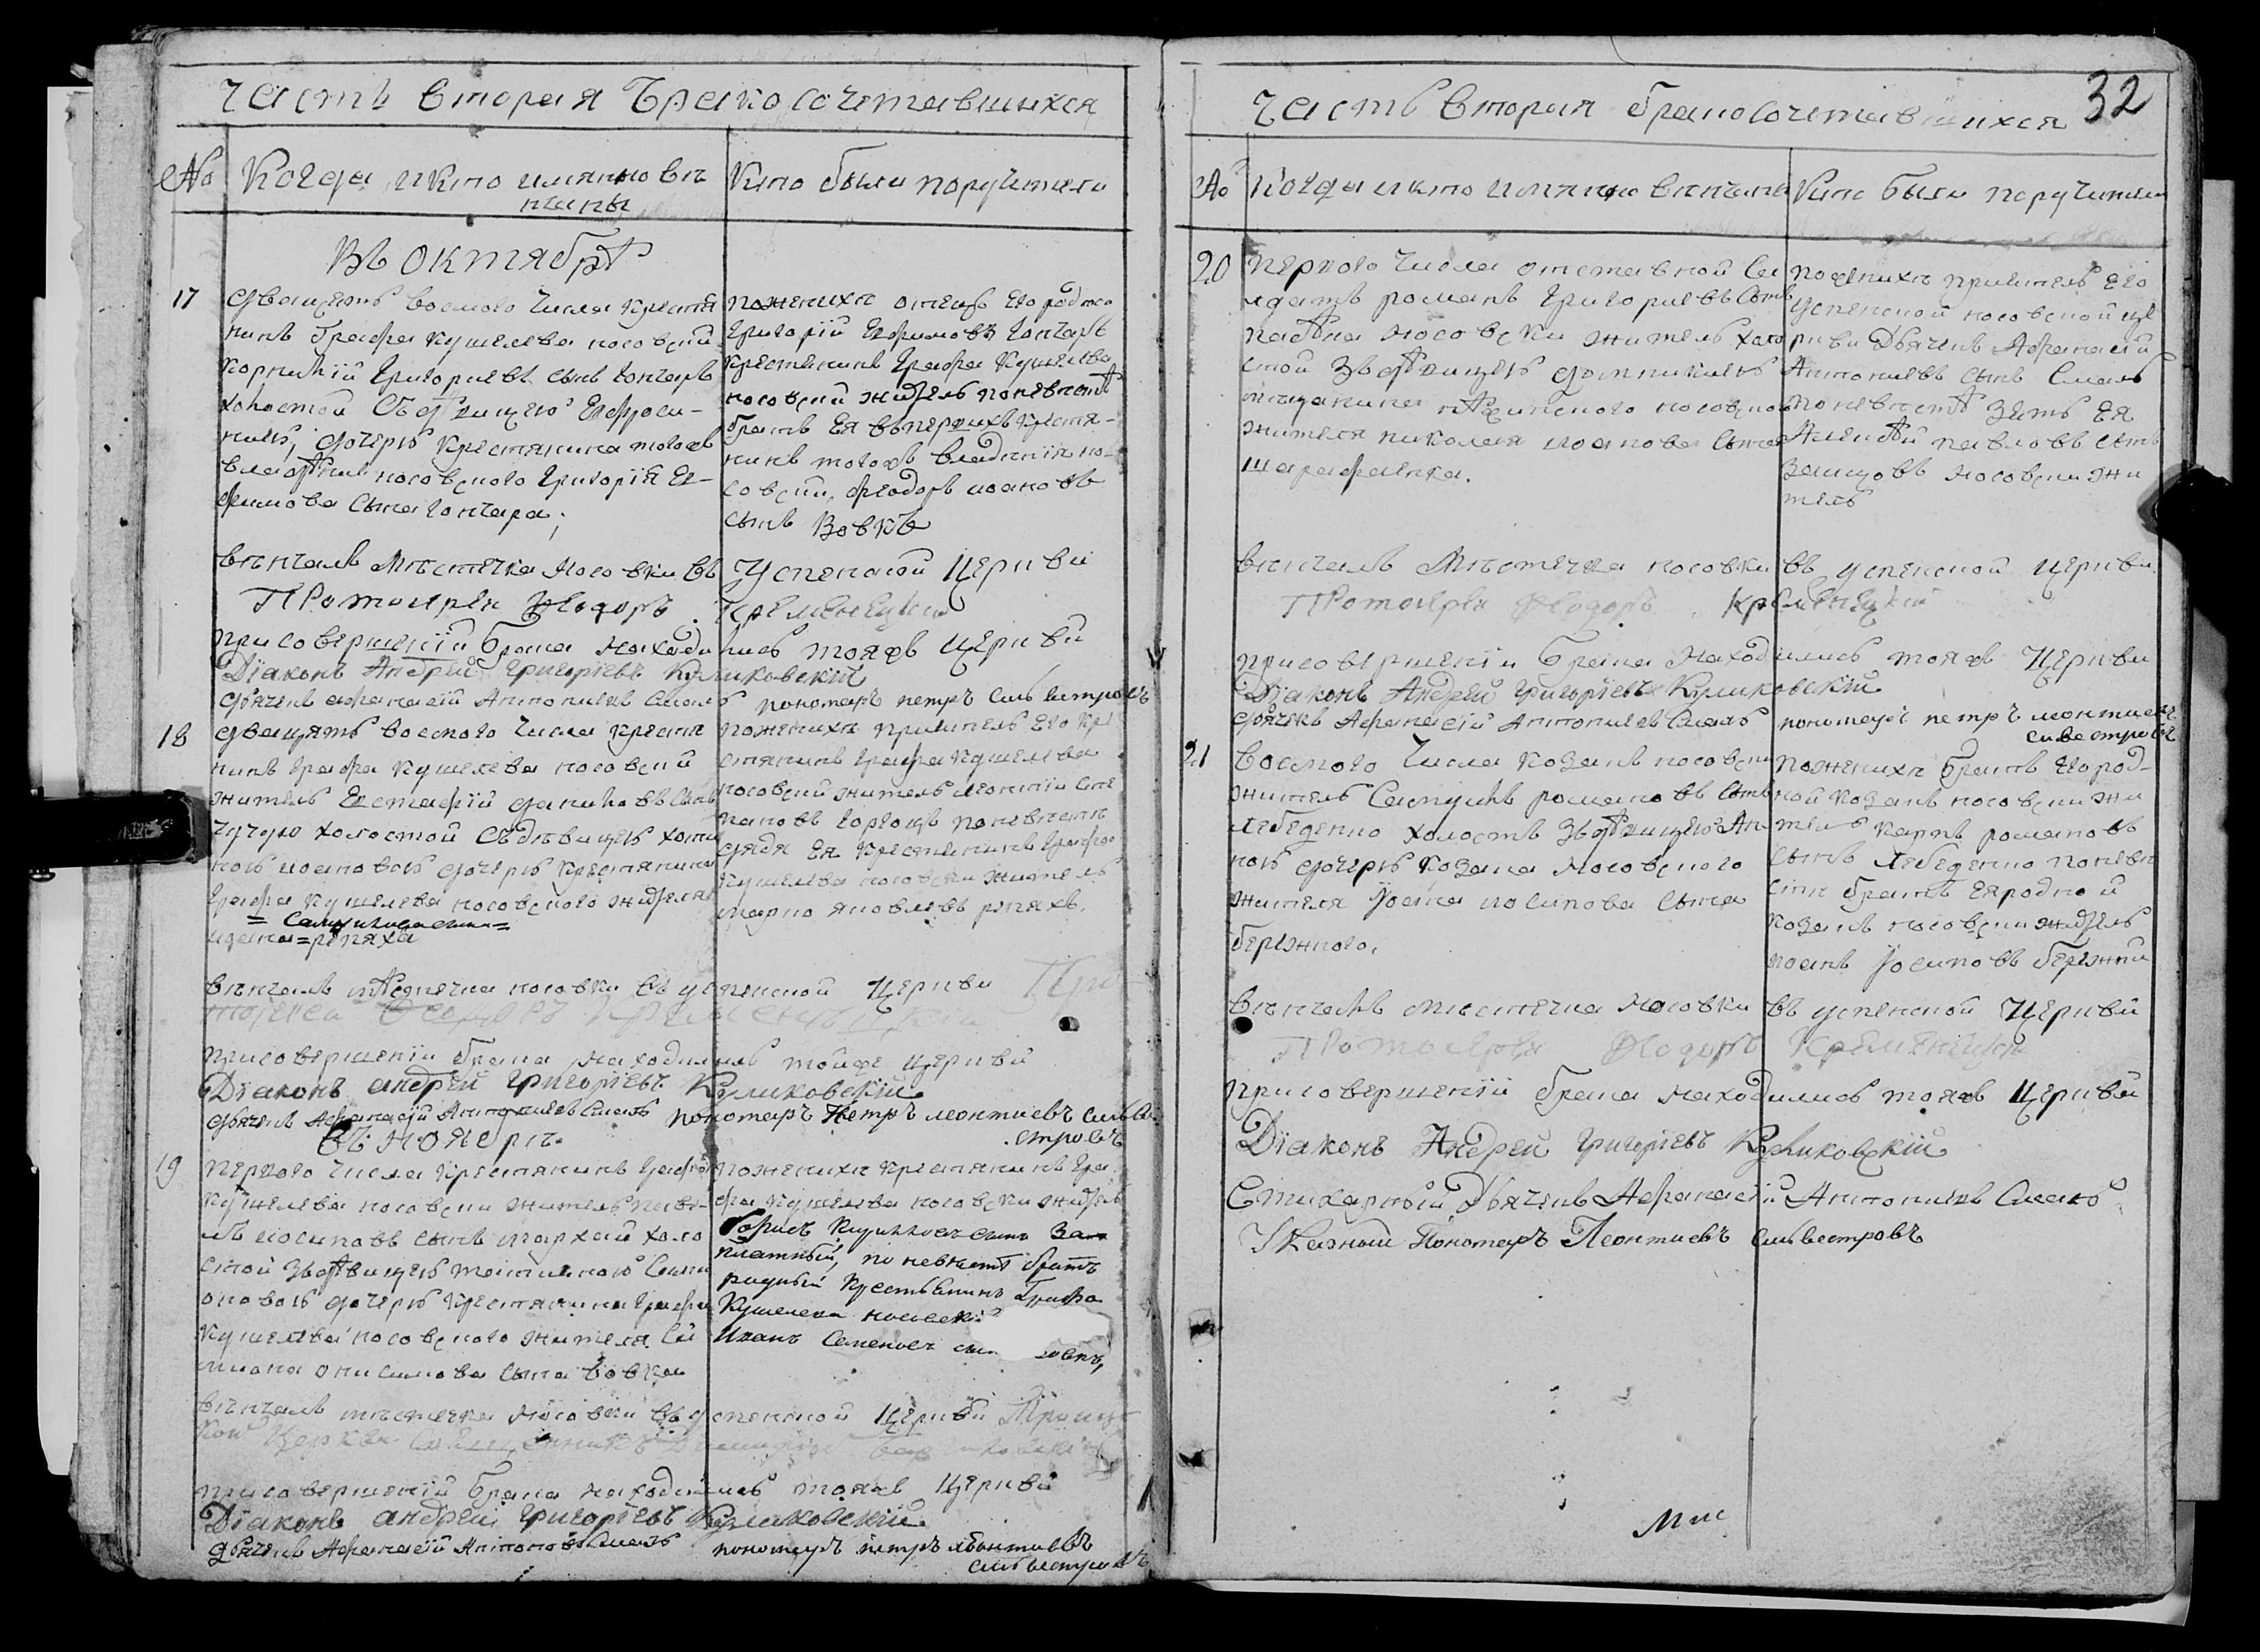 Часть вторая Бракосочетавшихся
№ Когда икто имянно вѣ
нчаны
Кто были поручители
Въ октябрѣ
17 дватцать восмого числа крестя
нинъ Графа Кушелева носовский
Корнилій Григориевъ сынъ Гончаръ
холостой Съ дѣвицею Евфроси-
ниею, дочерю крестянина тогожъ
владѣния носовского Григорія Ев-
фимова сына Гончара;
поженихѣ отецъ его родной
Григорій Евфимовъ Гончаръ
Крестянинъ Графа Кушелева
носовский житель поневѣстѣ
братъ Ея въпервихъ крестя-
нинъ тогожъ владѣнія но-
совский, Феодоръ иоановъ
сынъ Вовкъ
вѣнчалъ Мѣстечка Носовки въ Успенской Церкви
Протоиерей Феодоръ Кременецкий
присовершеніи брака находились тояжъ Церкви
Діаконъ Андрей Григоріевъ Куликовскій
дьячекъ афанасій Антониевъ Смаль пономарь петръ Сильвестровъ
18 дватцять восмого числа крестя
нинъ Графа Кушелева носовский
житель Евстафій даниловъ сынъ
холостой Съдѣвицею
иоановою дочерю крестянина
Графа Кушелева носовского жителя
= репяха
поженихѣ приятель его кре
стянинъ Графа Кушелева
носовский житель леонтій сте
пановъ поневѣстѣ
дядя Ея крестянинъ Графа
Кушелева носовский житель
марко яковлевъ репяхъ.
вѣнчалъ мѣстечка носовки въ успенской Церкви Про
тоиерей Феодоръ Кременецкий
присовершеніи брака находились тойже Церкви
Діаконъ андрей Григоріевъ Куликовскій
дьячекъ Афанасій Антониевъ Смаль пономарь Петръ леонтиевъ Сильве
стровъ
Въ ноябрѣ
19 первого числа крестянинъ Графа
Кушелева носовски житель паве-
лъ иосиповъ сынъ холо
стой здѣвицею Сими
оновою дочерю крестянина Графа
Кушелева носовского жителя Си
миона онисимова сына вовка
поженихѣ крестянинъ Гра
фа Кушелева носовски житель
Борисъ Кириловъ сынъ За
платный, по невѣстѣ братъ
родный Крестьянинъ Графа
Кушелева носовскій
Иванъ Семеновъ
вѣнчалъ мѣстечка Носовки въ успенской Церкви Троиц
кой Церкви Священникъ
присовершеніи брака находились тояжъ Церкви
Діаконъ андрей Григоріевъ Куликовскій
дьячекъ Афанасій Антоновъ Смаль пономарь петръ леонтиевъ
сильвестровъ
Часть вторая бракосочетавшихся 32
№ Когда и кто имянно вѣнчаны
Кто были поручители
20 первого числа отставной Сол
датъ романъ Григориевъ сынъ
носовски житель холо
стой Здѣвицею домникиею
нѣжинского носовского
жителя николая иоанова сына
шарафаенка.
поженихѣ приятель его
успенской носовской це
ркви Дьячекъ Афанасій
Антониевъ сынъ Смаль
поневѣстѣ зять Ея
Алексѣй павловъ сынъ
носовски жи
тель
вѣнчалъ Мѣстечка носовки въ успенской церкви
Протоиерей Феодоръ Кременецкій
присовершеніи брака находились тояжъ Церкви
Діаконъ Андрей Григоріевъ Куликовскій
дьячекъ Афанасій Антониевъ Смаль пономарь петръ леонтиевъ
силвестровъ
21 восмого числа козакъ носовски
житель романовъ сынъ
лебеденко холостъ Здѣвицею Ан
ною дочерю козака носовского
жителя иосипова сына
бережного.
поженихѣ братъ его род-
ной козакъ носовски жи
тель карпъ романовъ
сынъ лебеденко поневѣ
стѣ братъ Ея родной
козакъ носовски житель
иоанъ иосиповъ бережни
вѣнчалъ мѣстечка Носовки въ успенской Церкви
Протоиерей Феодоръ Кременецки
присовершеніи брака находились тояжъ Церкви
Діаконъ Андрей Григоріевъ Куликовскій
Стихарный Дьячекъ Афанасій Антониевъ Смаль
Указный Пономарь Леонтиевъ Сильвестровъ